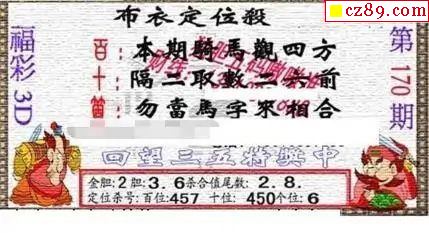 cz89.com
布衣定位殺
福彩3D
第170期
百：本期騎馬觀四方
十：隔二取數二六前
笛：勿當馬字來相合
回望三五将奖中
金胆:2胆3.6杀合值尾数:2.8.
定位杀号:百位:457 十位:450个位:6